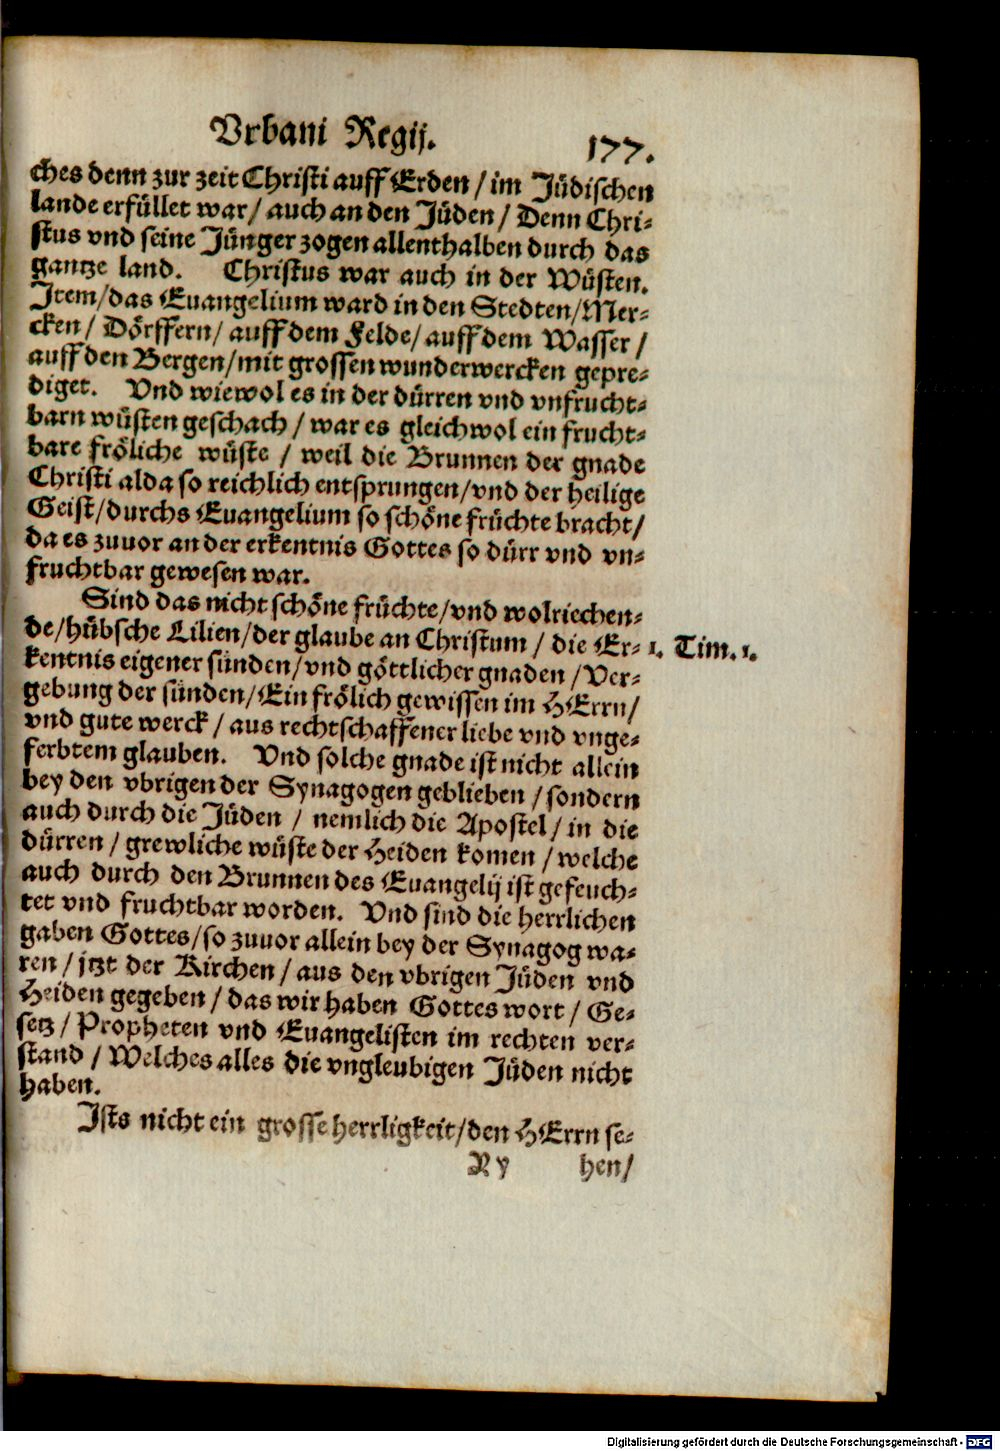 Vrbani Regij.
177.
ches denn zur zeit Christi auff Erden / im Jüdischen
lande erfüllet war / auch an den Jüden / Denn Chri-
stus vnd seine Jünger zogen allenthalben durch das
gantze land. Christus war auch in der Wüsten.
Item / das Euangelium ward in den Stedten / Mer-
cken / Dörffern / auff dem Felde / auff dem Wasser /
auff den Bergen / mit grossen wunderwercken gepre-
diget. Vnd wiewol es in der dürren vnd vnfrucht-
barn wüsten geschach / war es gleichwol ein frucht-
bare fröliche wüste / weil die Brunnen der gnade
Christi alda so reichlich entsprungen / vnd der heilige
Geist / durchs Euangelium so schöne früchte bracht /
da es zuuor an der erkentnis Gottes so dürr vnd vn-
fruchtbar gewesen war.
Sind das nicht schöne früchte / vnd wolriechen-
de / hübsche Lilien / der glaube an Christum / die Er-
1. Tim. 1.
kentnis eigener sünden / vnd göttlicher gnaden / Ver-
gebung der sünden / Ein frölich gewissen im HErrn /
vnd gute werck / aus rechtschaffener liebe vnd vnge-
ferbtem glauben. Vnd solche gnade ist nicht allein
bey den vbrigen der Synagogen geblieben / sondern
auch durch die Jüden / nemlich die Apostel / in die
dürren / grewliche wüste der Heiden komen / welche
auch durch den Brunnen des Euangelij ist gefeuch-
tet vnd fruchtbar worden. Vnd sind die herrlichen
gaben Gottes / so zuuor allein bey der Synagog wa-
ren / jtzt der Kirchen / aus den vbrigen Jüden vnd
Heiden gegeben / das wir haben Gottes wort / Ge-
setz / Propheten vnd Euangelisten im rechten ver-
stand / Welches alles die vngleubigen Jüden nicht
haben.
Ists nicht ein grosse herrligkeit / den HErrn se-
Ry
hen /
Digitalisierung gefördert durch die Deutsche Forschungsgemeinschaft - DFG